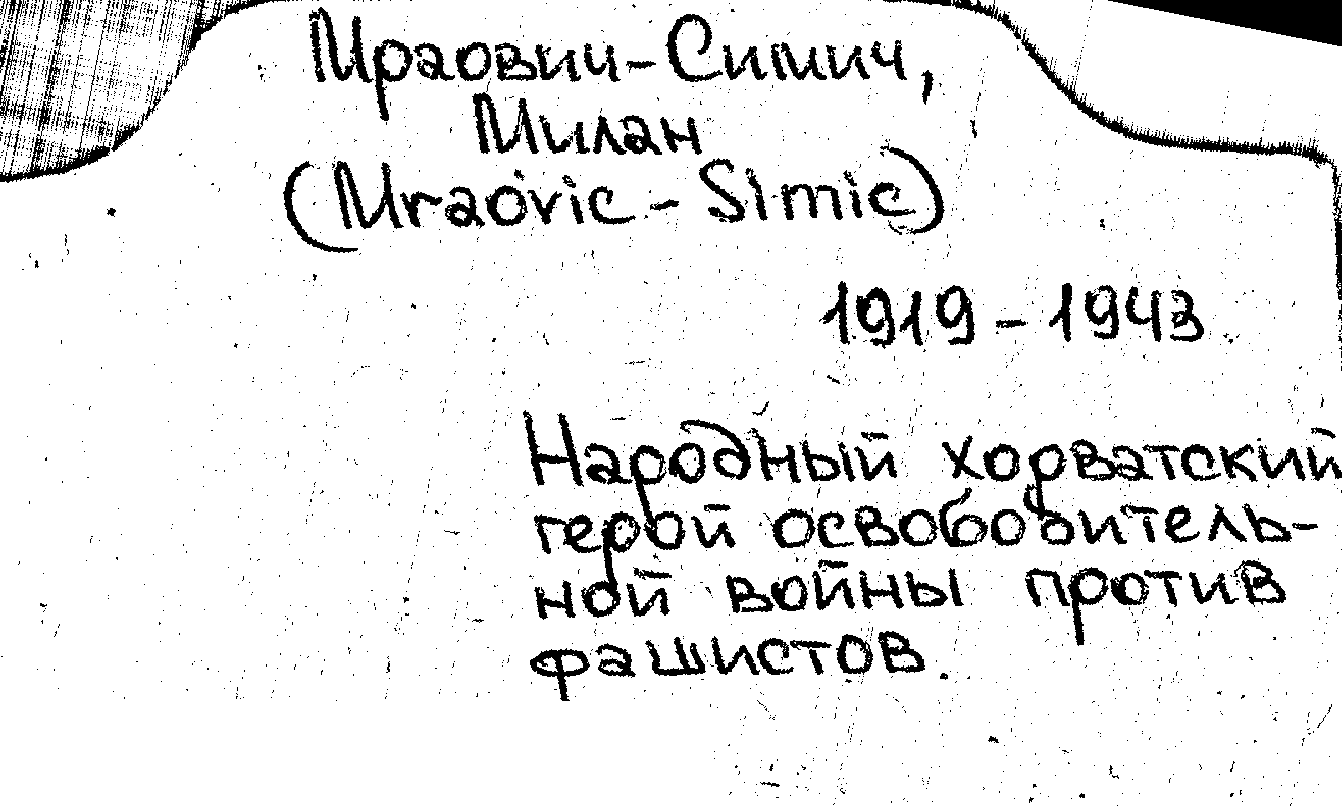 Мраович-Симич,
Милан
(Mraovic - Simic)
1919 - 1943
Народный хорватский
герой освободитель-
ной войны против
фашистов